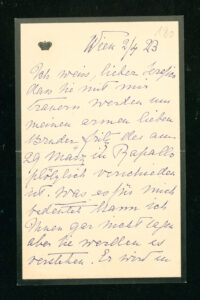 Wien 2/4 23
Ich weiss, lieber
dass Sie mit mir
trauern werden um
meinen armen lieben
Bruder Fritz der am
29 März in Rapallo
plötzlich verschieden
ist. Was es für mich
bedeutet kann ich
Ihnen gar nicht sagen
aber Sie werden es
verstehen. Er wird in